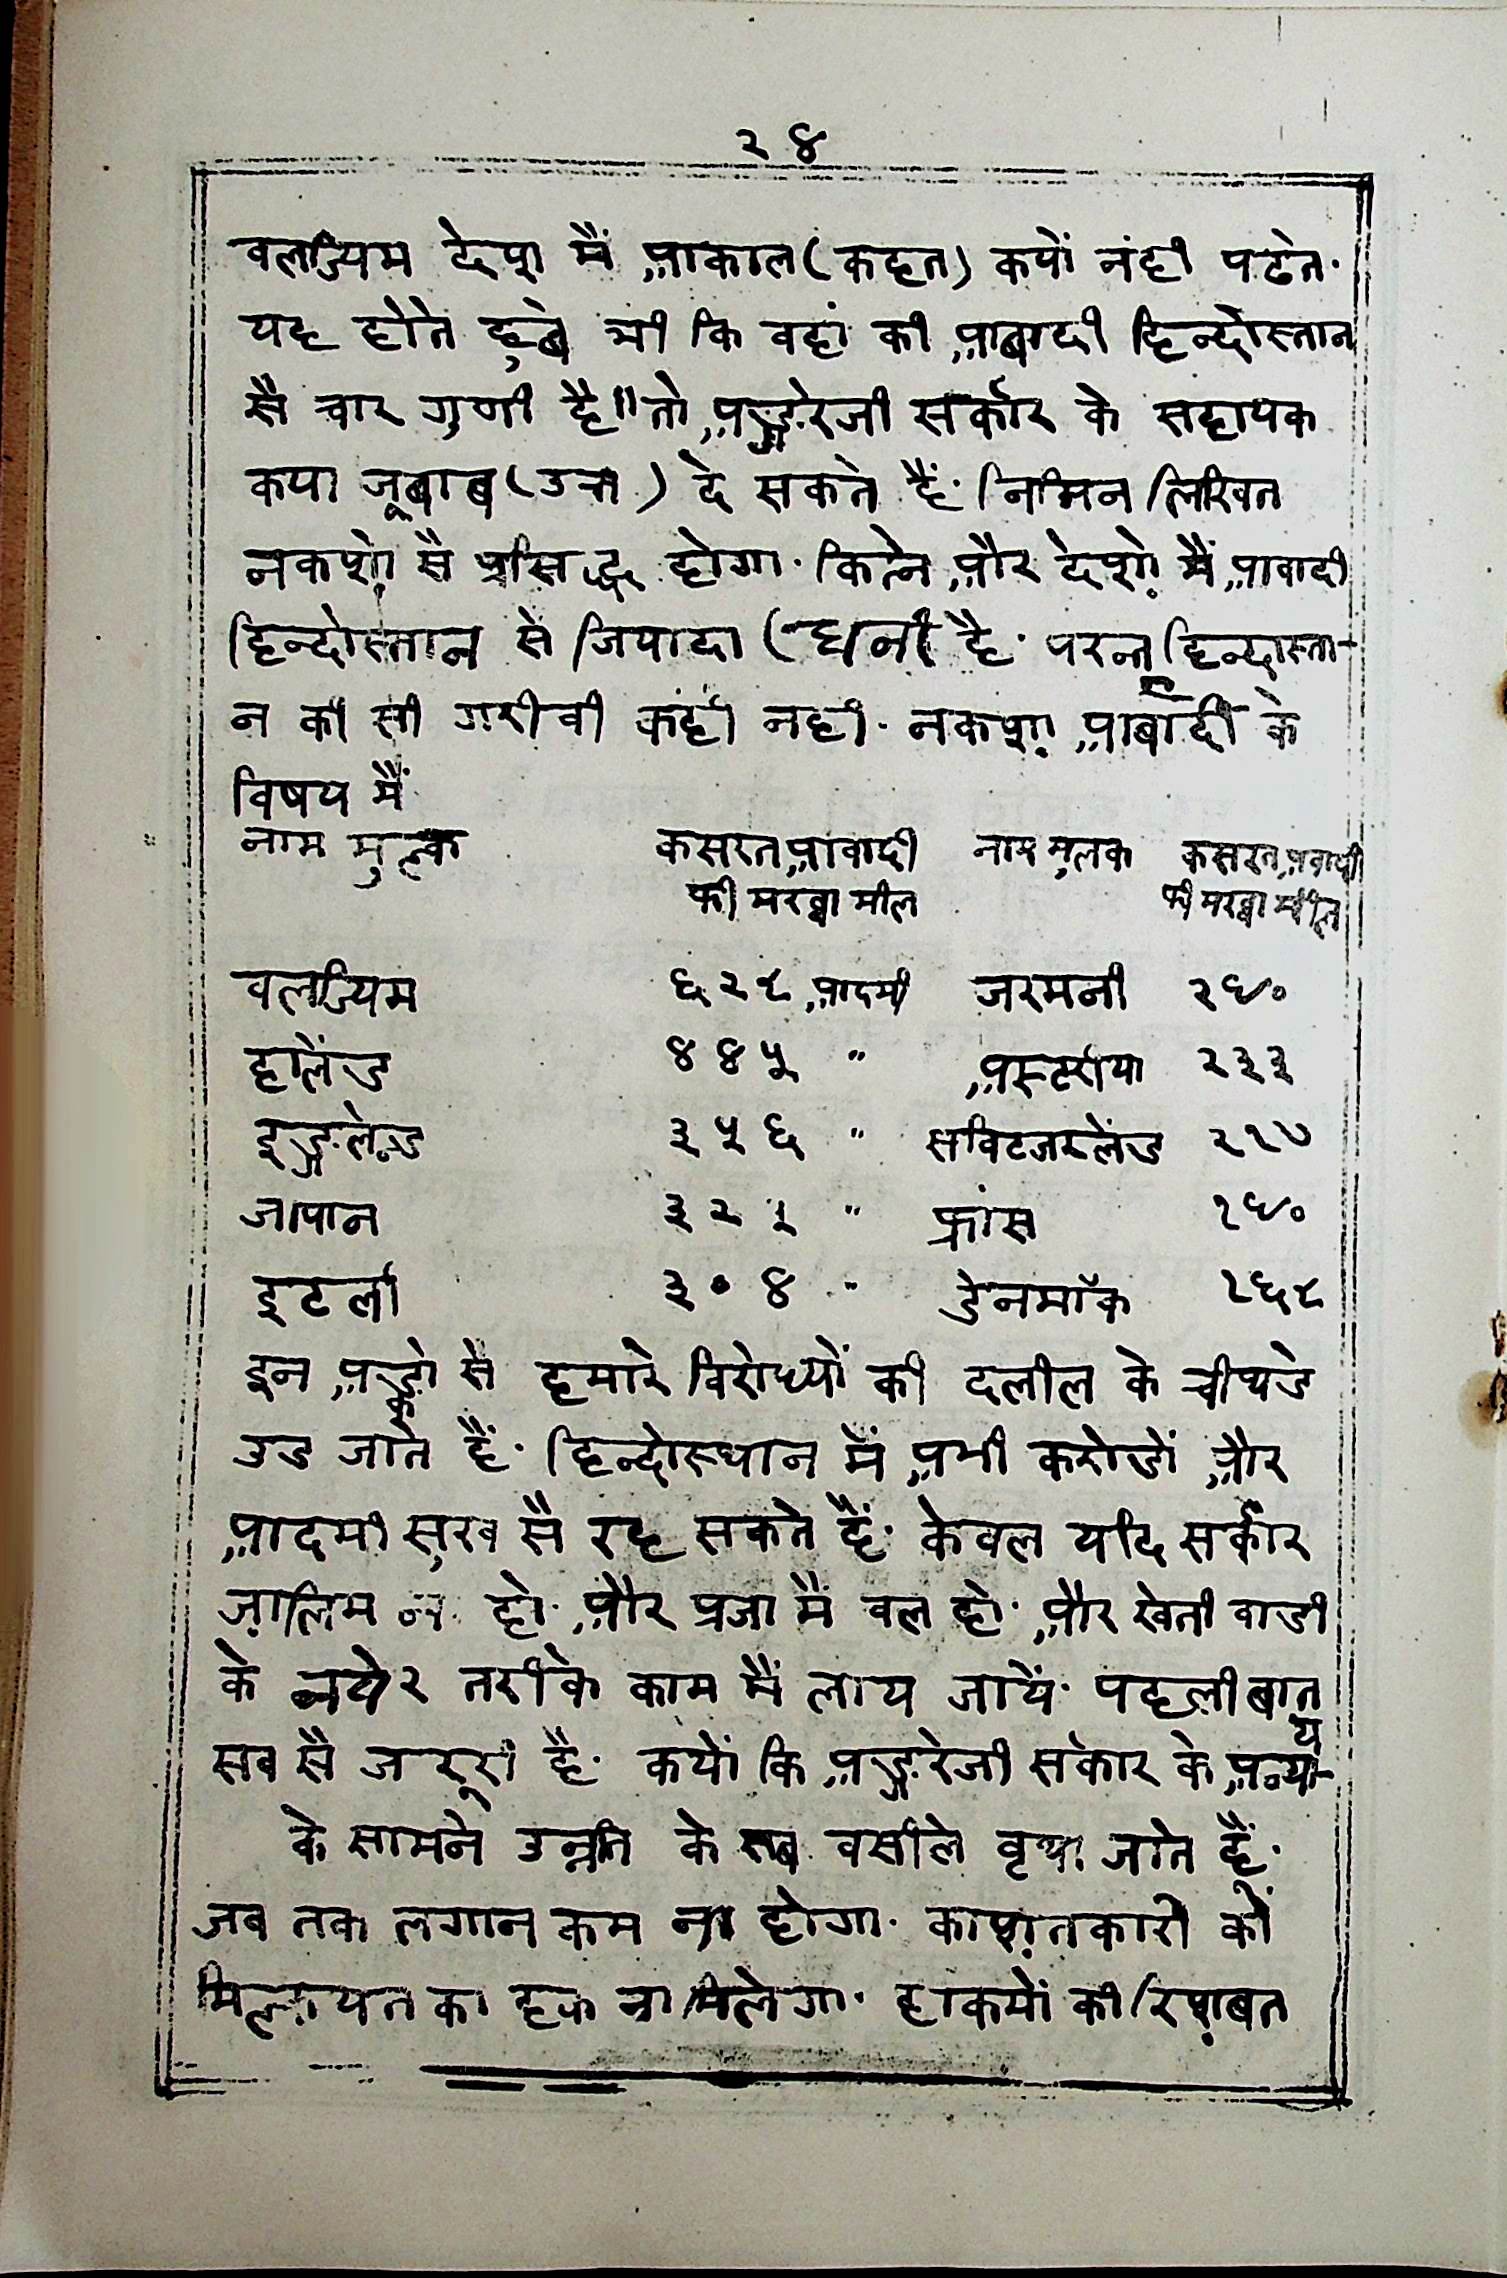 २४
वलज्यिम देश मैं अकाल (कहत) कयों नंही पढते.
यह होते हुवे भी कि वहां की आबादी हिन्दोस्तान
सै चार गुणी है॥ तो अङ्गरेजी सर्कार के सहायक
कया जूबाब (उत्र) दे सकते हैं. निमिन लिखित
नकशे सै प्रसिद्ध होगा. कितने और देशों मैं आवादी
हिन्दोस्तान से जियादा (घनी है. परन्तु हिन्दोस्ता-
न की सी गरीवी कंही नही. नकशा आबादी के
विषय मैं
नाम मुल्क कसरत आवादी नाम मुलक कसरत आवादी
फी मरब्बा मील फी मरब्बा मील
वलज्यिम ६२८ आदमी जरमनी २९०
हालेंड ४४५ " अस्टरीया २३३
इङ्गलेन्ड ३५६ " सविटजरलेंड २१७
जापान ३२५ " फ्रांस १९०
इटली ३०४ " डेनमार्क १६८
इन अङ्कों से हमारे विरोध्यों की दलील के चीथडे
उड जाते हैं. हिन्दोस्थान में अभी करोडों और
आदमी सुख सै रह सकते हैं. केवल यदि सर्कार
ज़ालिम न हो. और प्रजा मैं वल हो. और खेती वाडी
के नये२ तरीके काम मैं लाय जायें. पहली बात
सब सै जरूरी है. कयों कि अङ्गरेजी सर्कार के अन्या-
य
के सामने उन्नति के सब वसीले वृथा जाते हैं.
जब तक लगान कम ना होगा. काशतकारों को
मिलकायत का हक ना मिलेगा. हाकमों की रिशबत